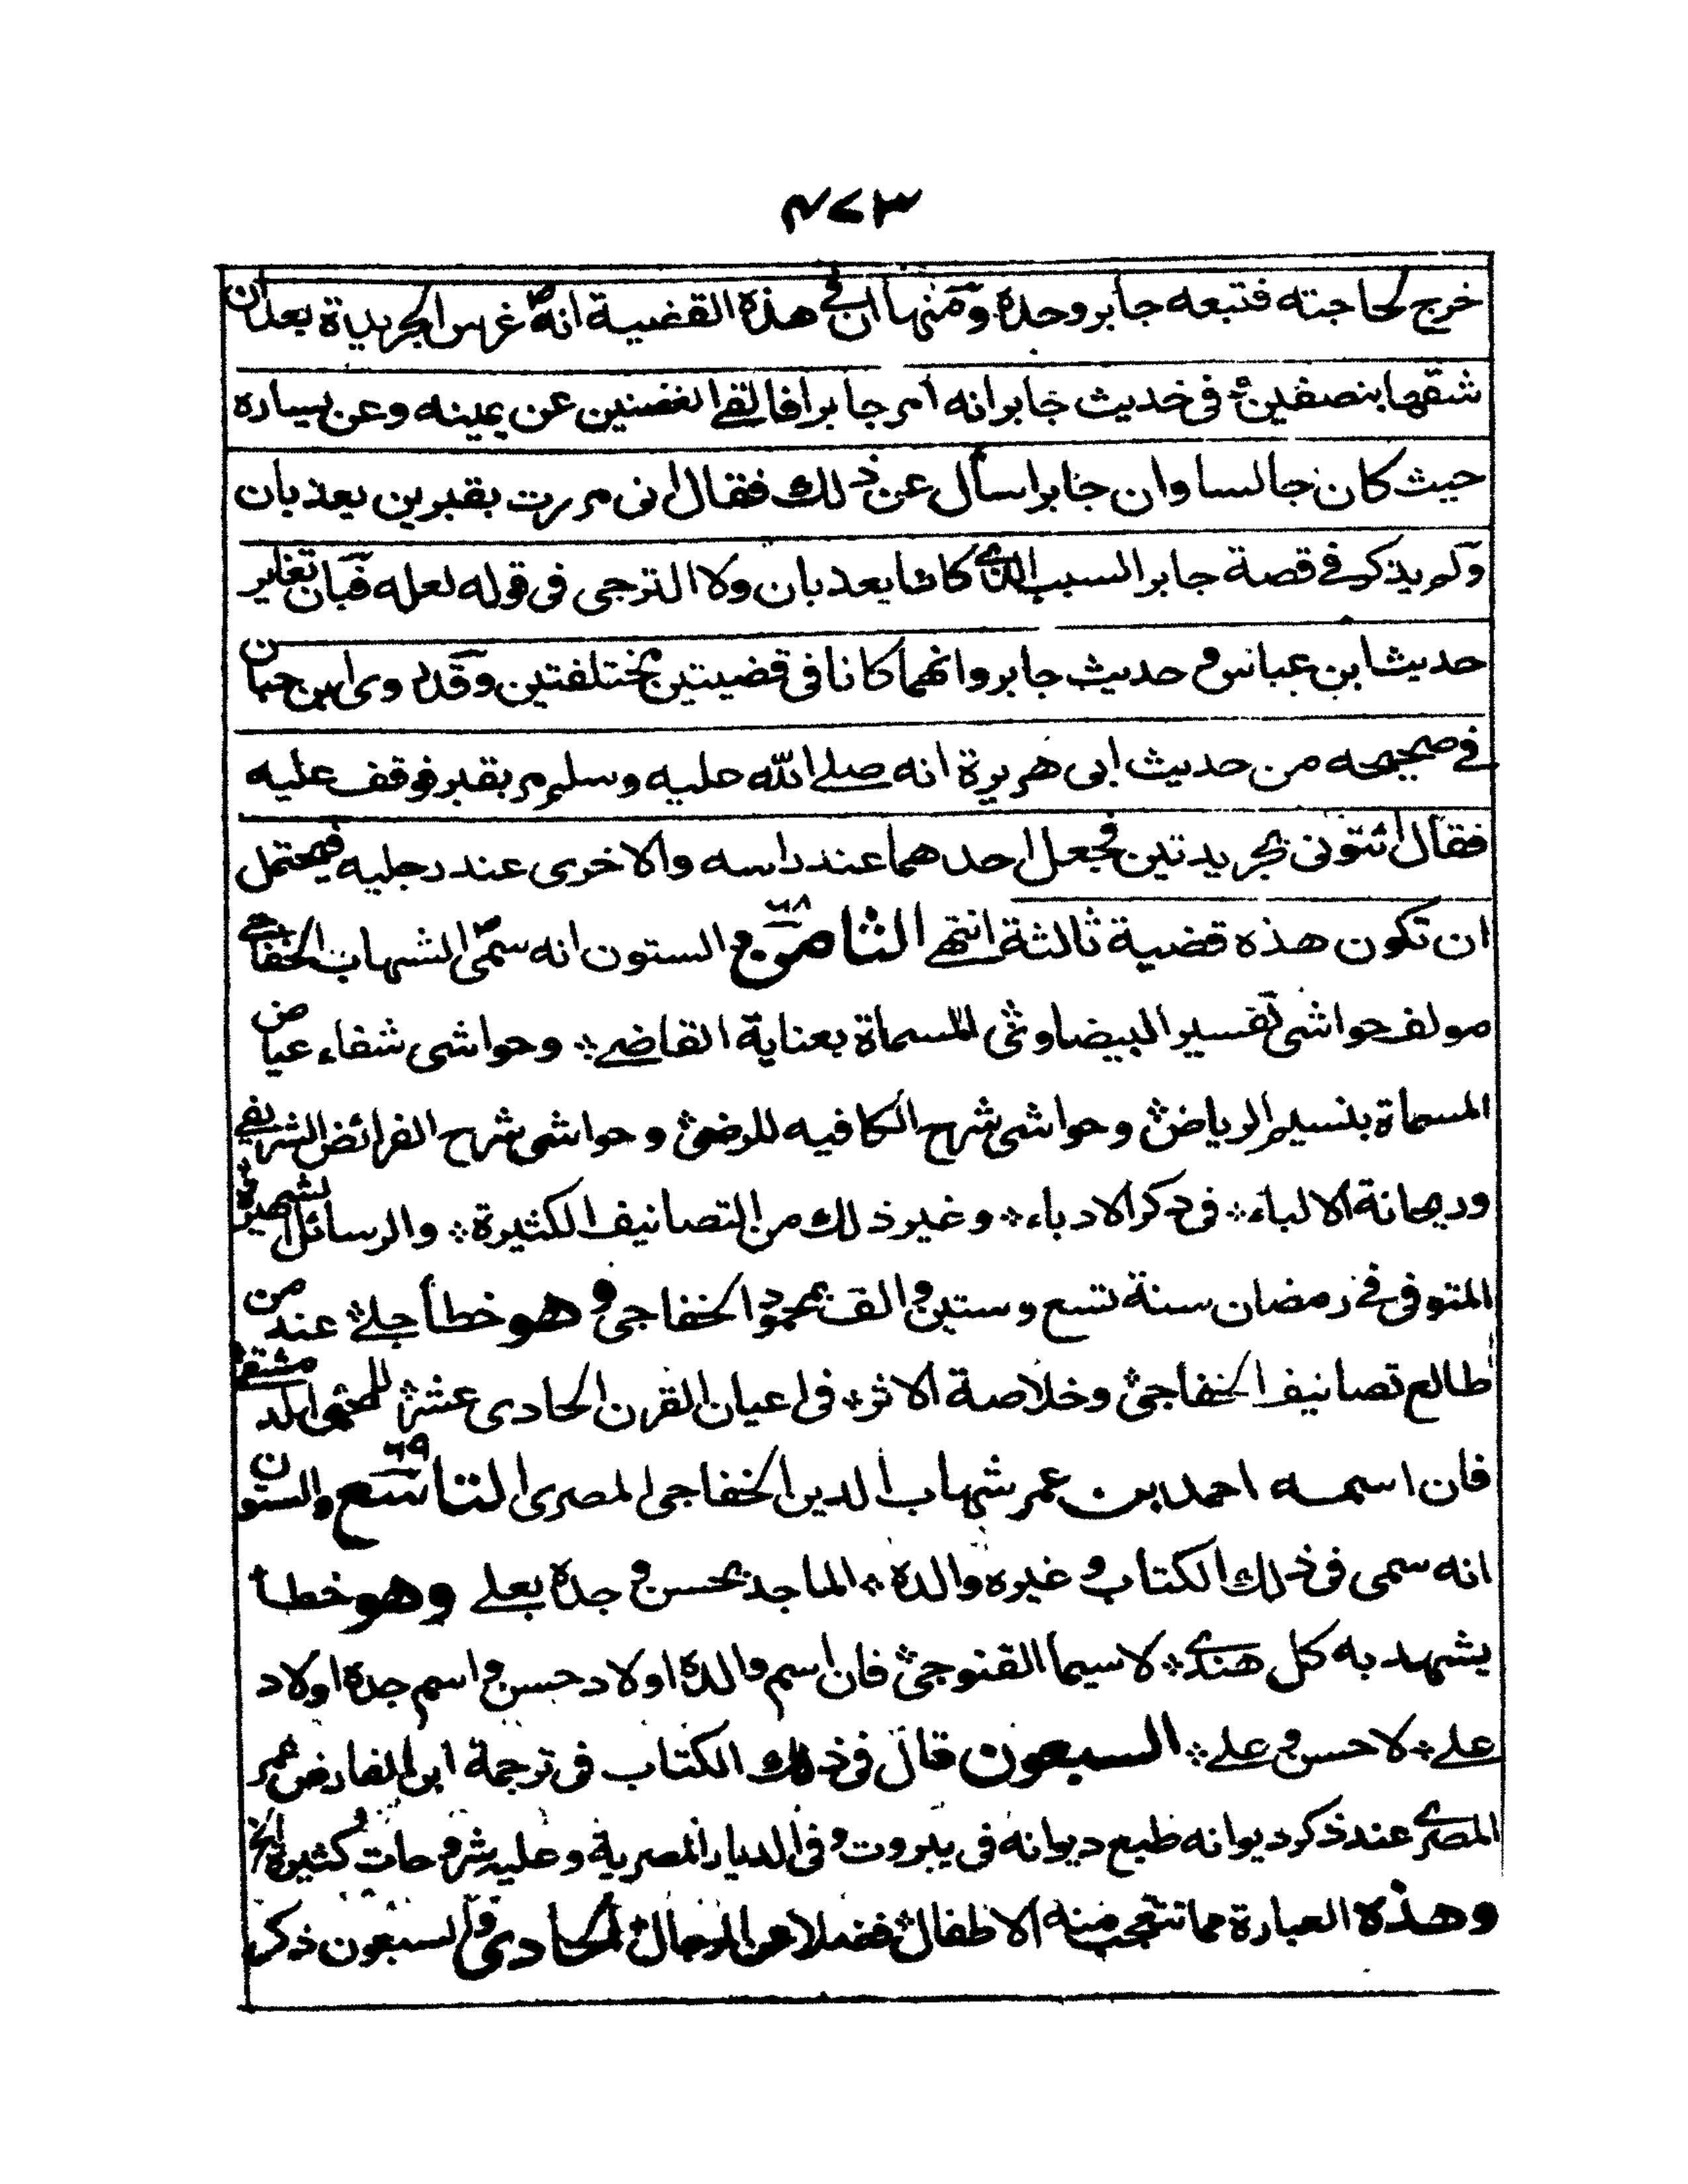 ٤٧٣
خرج لحاجته فتبعه جابر وحده ومنها ان في هذه القضية انه غرس الجريدة بعد ان
شقها بنصفين في حديث جابر انه امر جابرا فالقى الغصنين عن يمينه وعن يساره
حيث كان جالسا وان جابرا سأل عن ذلك فقال انى مررت بقبرين يعذبان
ولم يذكر في قصة جابر السبب الذي كانا يعذبان ولا الترجى فى قوله لعله فبان تغاير
حديث ابن عباس و حديث جابر وانهما كانا فى قضيتين مختلفتين وقد روى ابن حبان
في صحيحه من حديث ابى هريرة انه صلے الله عليه وسلم مر بقبر فوقف عليه
فقال ائتونى بجريدتين فجعل احدهما عند راسه والاخرى عند رجليه فيحتمل
ان تكون هذه قضية ثالثة انتهى الثامن و الستون ٦٨ انه سمى الشهاب الخفاجي
مولف حواشى تفسير البيضاوى المسماة بعناية القاضے وحواشى شفاء عياض
المسماة بنسيم الرياض وحواشى شرح الكافيه للرضى و حواشى شرح الفرائض الشريفي
وريحانة الالباء فى ذكر الادباء وغير ذلك من التصانيف الكثيرة والرسائل الشهيرة
المتوفى في رمضان سنة تسع وستين و الف بمحمود الخفاجى و هو خطأ جلى عند من
طالع تصانيف الخفاجى وخلاصة الاثر فى اعيان القرن الحادى عشر للمحبى الدمشقي
فان اسمه احمد بن عمر شهاب الدين الخفاجى المصرى التاسع والستون ٦٩
انه سمى فى ذلك الكتاب و غيره والده الماجد بحسن و جده بعلے وهو خطأ
يشهد به كل هندي لا سيما القنوجى فان اسم والده اولاد حسن و اسم جده اولاد
علے لا حسن و علے السبعون قال فى ذلك الكتاب فى ترجمة ابن الفارض عمر
المصرى عند ذكر ديوانه طبع ديوانه فى بيروت و فى الديار المصرية وعليه شروحات كثيرة الخ
وهذه العبارة مما تتعجب منه الاطفال فضلا عن الرجال الحادى والسبعون ذكر